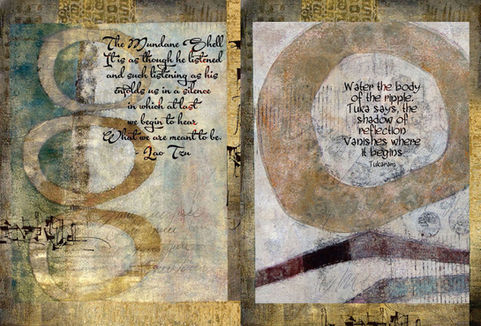 The Mundane Shell
It is as though he listened
and such listening as his
enfolds us in a silence
in which at last
we begin to hear
What we are meant to be.
- Lao Tzu
Water the body
of the ripple.
Tuka says, the
shadow of
reflection
Vanishes where
it begins
Tukaram